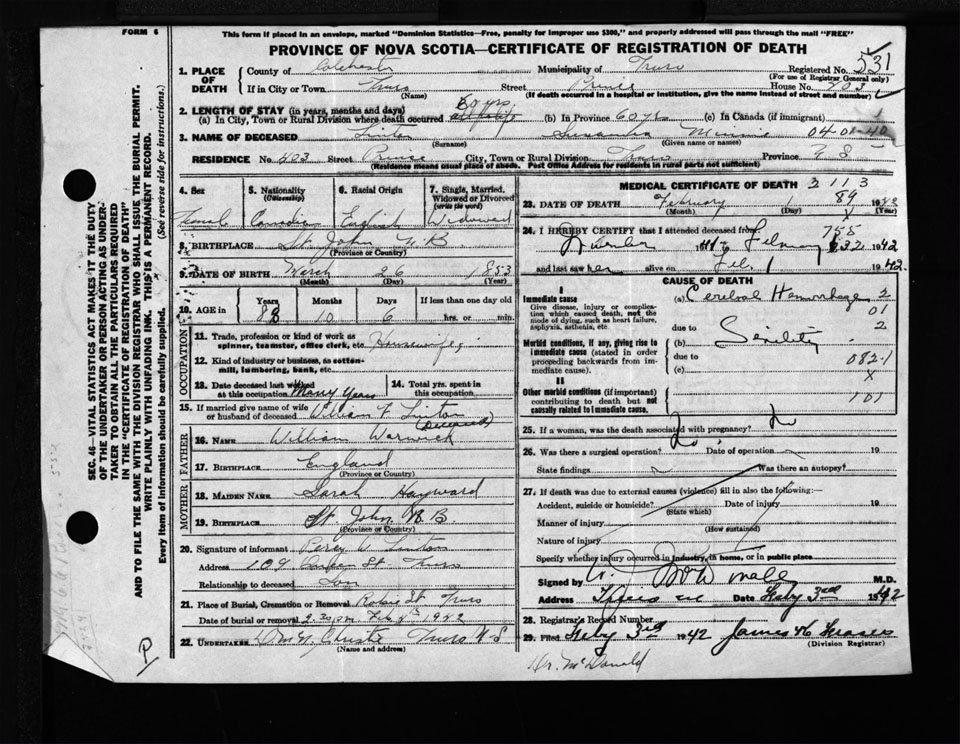 FORM 6
This form if placed in an envelope, marked "Dominion Statistics—Free, penalty for improper use $300," and properly addressed will pass through the mail "FREE"
PROVINCE OF NOVA SCOTIA—CERTIFICATE OF REGISTRATION OF DEATH
531
1. PLACE OF DEATH
County of Colchester Municipality of Truro Registered No.
(For use of Registrar General only)
If in City or Town Truro Street Prince House No.
(Name) (If death occurred in a hospital or institution, give the name instead of street and number)
2. LENGTH OF STAY (in years, months and days)
(a) In City, Town or Rural Division where death occurred 60 yrs. (b) In Province 60 yrs (c) In Canada (if immigrant)
3. NAME OF DECEASED Linton Susanna Minnie
(Surname) (Given name or names)
RESIDENCE No. 403 Street Prince City, Town or Rural Division Truro Province N S
(Residence means usual place of abode. Post Office Address for residents in rural parts not sufficient)
4. Sex
5. Nationality (Citizenship)
6. Racial Origin
7. Single, Married, Widowed or Divorced (write the word)
Female Canadian English Widowed
8. BIRTHPLACE St. John N. B
(Province or Country)
9. DATE OF BIRTH March 26 1853
(Month) (Day) (Year)
10. AGE in Years Months Days If less than one day old
88 10 6 hrs. or min.
OCCUPATION
11. Trade, profession or kind of work as spinner, teamster, office clerk, etc. Housewife
12. Kind of industry or business, as cotton-mill, lumbering, bank, etc.
13. Date deceased last worked at this occupation Many Years
14. Total yrs. spent in this occupation
15. If married give name of wife or husband of deceased William F Linton
(Deceased)
FATHER
16. NAME William Warwick
17. BIRTHPLACE England
(Province or Country)
MOTHER
18. MAIDEN NAME Sarah Hayward
19. BIRTHPLACE St. John N. B.
(Province or Country)
20. Signature of informant Percy W Linton
Address 109 St Truro
Relationship to deceased Son
21. Place of Burial, Cremation or Removal Robie St Truro
Date of burial or removal 2.30 PM Feb
22. UNDERTAKER Christie Truro N S
(Name and address)
MEDICAL CERTIFICATE OF DEATH 3113
23. DATE OF DEATH February 1 89
(Month) (Day) (Year)
X
24. I HEREBY CERTIFY that I attended deceased from: 755
1942
and last saw her alive on Feb. 1 1942.
CAUSE OF DEATH
I
Immediate cause
Give disease, injury or complication which caused death, not the mode of dying, such as heart failure, asphyxia, asthenia, etc.
(a) Cerebral Hemorrhage 2
01
due to
2
Morbid conditions, if any, giving rise to immediate cause (stated in order proceeding backwards from immediate cause).
(b) Senility
due to
082-1
(c)
X
II
Other morbid conditions (if important) contributing to death but not causally related to immediate cause.
101
25. If a woman, was the death associated with pregnancy? No
26. Was there a surgical operation? No Date of operation
State findings Was there an autopsy?
27. If death was due to external causes (violence) fill in also the following:—
Accident, suicide or homicide? Date of injury 19
(State which)
Manner of injury
(How sustained)
Nature of injury
Specify whether injury occurred in industry, in home, or in public place
Signed by M.D.
Address Date Feby 3rd 1942
28. Registrar's Record Number
29. Filed Feby 3rd 1942 James W
(Division Registrar)
Dr. McDonald
SEC. 46—VITAL STATISTICS ACT MAKES IT THE DUTY
OF THE UNDERTAKER OR PERSON ACTING AS UNDER-
TAKER TO OBTAIN ALL THE PARTICULARS REQUIRED
IN THE "CERTIFICATE OF REGISTRATION OF DEATH"
AND TO FILE THE SAME WITH THE DIVISION REGISTRAR WHO SHALL ISSUE THE BURIAL PERMIT.
WRITE PLAINLY WITH UNFADING INK. THIS IS A PERMANENT RECORD.
Every item of Information should be carefully supplied. (See reverse side for instructions.)
P